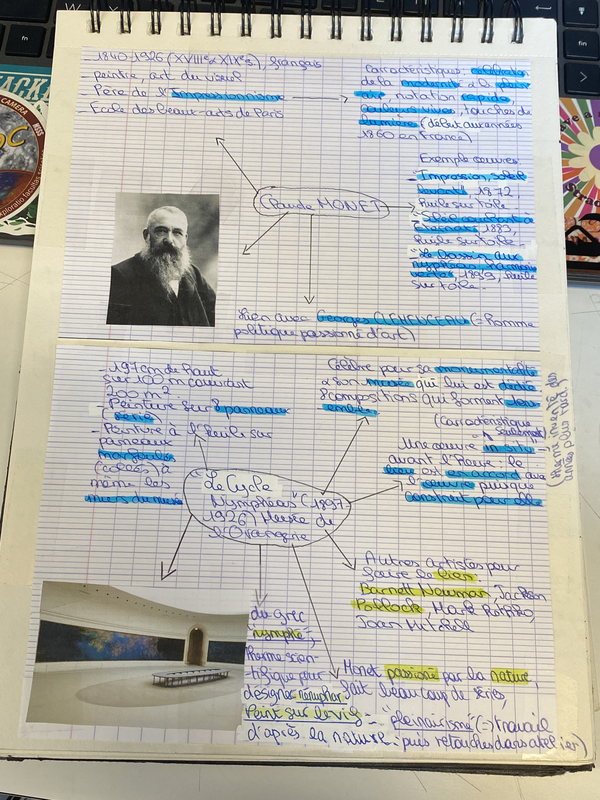 - 1840-1926 (XVIIIe & XIXe s), français
- peintre, art du visuel
- Père de l'Impressionnisme
- Ecole des beaux-arts de Paris
Caractéristiques: célébration
de la modernité & du plein
air, notation rapide,
couleurs vives, touches de
lumière (début aux années
1860 en France)
Exemple œuvres:
- Impression, soleil
levant, 1872,
huile sur toile.
1883,
huile sur toile.
- Le Bassin aux
nymphéas, harmonie
verte, 1899, huile
sur toile.
Claude MONET
Lien avec Georges CLEMENCEAU (= homme
politique passionné d'art)
- 197 cm de haut
sur 100 m couvrant
200 m².
- Peinture sur 8 panneaux
(série)
- Peinture à l'huile sur
panneaux
marouflés
(collés) à
même les
murs du musée
Célèbre pour sa monumentalité
& son musée qui lui est dédié
8 compositions qui forment deux
(caractéristique
Une œuvre "in situ"
avant l'heure: le
lieu est en accord avec
l'œuvre puisque
construit pour elle
(terme inventé des
années plus tard)
Le Cycle
Nymphéas (1897-
1926) Musée de
l'Orangerie
Autres artistes pour
faire le lien:
Barnett Newman, Jackson
Pollock, Mark Rothko,
Joan Mitchell
du grec
"nymphe",
terme scien-
tifique pour
désigner nénuphar
Monet passionné par la nature,
fait beaucoup de séries,
Peint sur le vif = "pleinairisme" (=> travail
d'après la nature: puis retouches dans atelier)